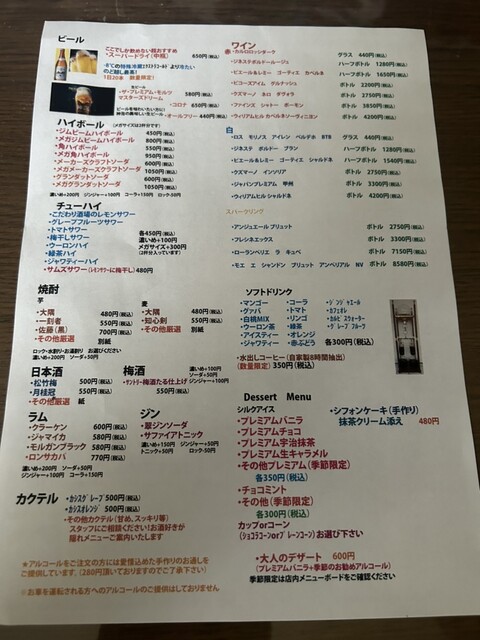 ビール
ここでしか飲めない超おすすめ
・スーパードライ(中瓶) 650円(税込)
のど越し最高！
1日20本 数量限定！
生ビール
・ザ・プレミアム・モルツ 580円(税込)
マスターズドリーム
・コロナ 650円(税込)
・オールフリー 440円(税込)
ハイボール (メガサイズは2杯分です)
・ジムビームハイボール 450円(税込)
・メガジムビームハイボール 800円(税込)
・角ハイボール 550円(税込)
・メガ角ハイボール 950円(税込)
・メーカーズクラフトソーダ 600円(税込)
・メガメーカーズクラフトソーダ 1050円(税込)
・グランダットソーダ 600円(税込)
・メガグランダットソーダ 1050円(税込)
濃いめ+200円 ジンジャー+100円 コーラ+150円 ロック-50円
チューハイ
・こだわり酒場のレモンサワー
・グレープフルーツサワー
・トマトサワー
・梅干しサワー
・ウーロンハイ
・緑茶ハイ
・ジャワティーハイ
各450円(税込)
濃いめ+100円
メガサイズ+300円
(2杯分入っています)
・サムズサワー(レモンサワーに梅干し) 480円
焼酎
芋
・大隅 480円(税込)
・一刻者 550円(税込)
・佐藤(黒) 700円(税込)
・その他厳選 別紙
麦
・大隅 480円(税込)
・知心剣 550円(税込)
・その他厳選 別紙
ロック・水割り・お湯割り お選びください
濃いめ+200円 ソーダ+50円
日本酒
・松竹梅 500円(税込)
・月桂冠 550円(税込)
・その他厳選 紙
梅酒
・サントリー梅酒たる仕上げ 550円(税込)
濃いめ+100円
ソーダ+50円
ジンジャー+100円
ラム
・クラーケン 600円(税込)
・ジャマイカ 580円(税込)
・モルガンブラック 580円(税込)
・ロンサカパ 770円(税込)
濃いめ+200円 ソーダ+50円
ジンジャー+100円 コーラ+150円
ジン
・翠ジンソーダ 500円(税込)
・サファイアトニック 550円(税込)
濃いめ+150円 ジンジャー+50円 ソーダ+50円
トニック+50円 ロック-50円
カクテル
・カシスグレープ 500円(税込)
・カシスオレンジ 500円(税込)
・その他カクテル(甘め、スッキリ等)
スタッフにご相談ください！お酒好きが
隠れメニューご案内いたします
★アルコールをご注文の方には愛情込めた手作りのお通しを
ご提供しています。(280円頂いておりますのでご了承下さい)
※お車を運転される方へのアルコールのご提供はしておりません
ワイン
赤・カルロロッシダーク グラス 440円(税込)
・ジネステボルドールージュ ハーフボトル 1280円(税込)
・ピエール&レミー ゴーティエ カベルネ ハーフボトル 1650円(税込)
ボトル 2200円(税込)
・クズマーノ ネロ ダヴォラ ボトル 2750円(税込)
・ファインズ シャトー ボーモン ボトル 3850円(税込)
・ウィリアムヒル カベルネソーヴィニヨン ボトル 4200円(税込)
白
・ロス モリノス アイレン ベルデホ BTB グラス 440円(税込)
・ジネステ ボルドー ブラン ハーフボトル 1280円(税込)
・ピエール&レミー ゴーティエ シャルドネ ハーフボトル 1540円(税込)
・クズマーノ インソリア ボトル 2750円(税込)
・ジャパンプレミアム 甲州 ボトル 3300円(税込)
・ウィリアムヒル シャルドネ ボトル 4200円(税込)
スパークリング
・アンジュエール ブリュット ボトル 2750円(税込)
・フレシネエックス ボトル 3300円(税込)
・ローランペリエ ラ キュベ ボトル 7150円(税込)
・モエ エ シャンドン ブリュット アンペリアル NV ボトル 8580円(税込)
ソフトドリンク
・マンゴー
・グァバ
・白桃MIX
・ウーロン茶
・アイスティー
・ジャワティー
・コーラ
・トマト
・リンゴ
・緑茶
・オレンジ
・赤ぶどう
・ジンジャエール
・カフェオレ
・カルピスウォーター
・グレープフルーツ
各300円(税込)
・水出しコーヒー(自家製8時間抽出)
(数量限定) 350円(税込)
Dessert Menu
シルクアイス
・プレミアムバニラ
・プレミアムチョコ
・プレミアム宇治抹茶
・プレミアム生キャラメル
・その他プレミアム(季節限定)
各350円(税込)
・チョコミント
・その他(季節限定)
各300円(税込)
カップorコーン
(ショコラコーンorプレーンコーン)お選び下さい
・シフォンケーキ(手作り)
抹茶クリーム添え 480円
・大人のデザート 600円
(プレミアムバニラ+季節のお勧めアルコール)
季節限定は店内メニューボードをご確認ください